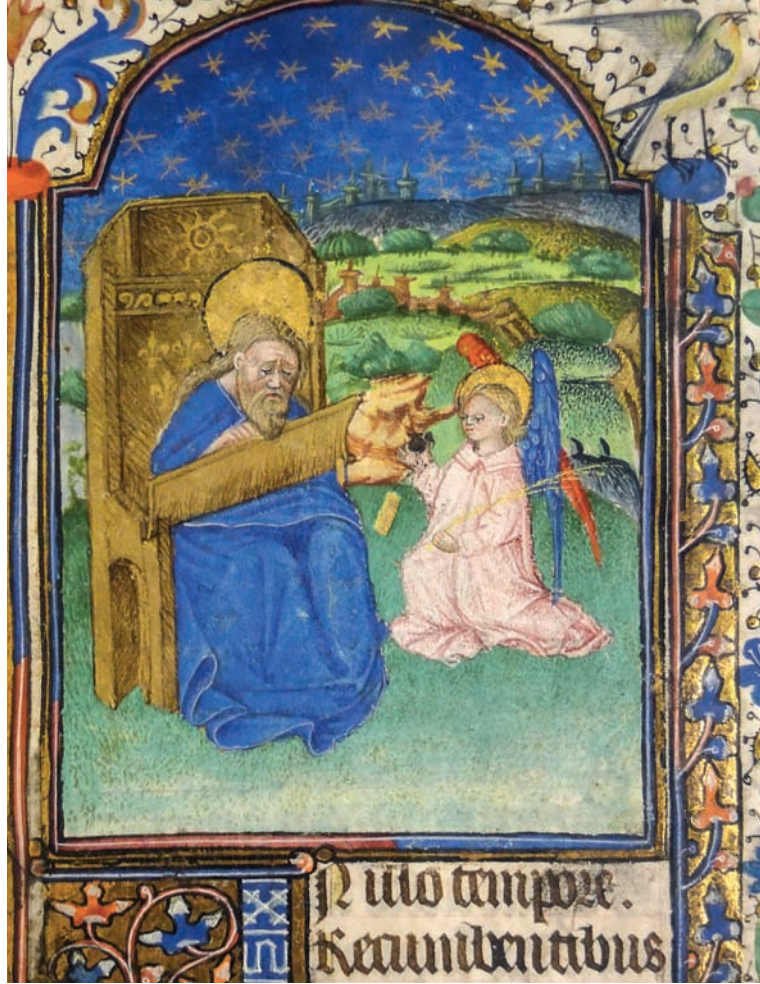 IN illo tempore.
Recumbentibus